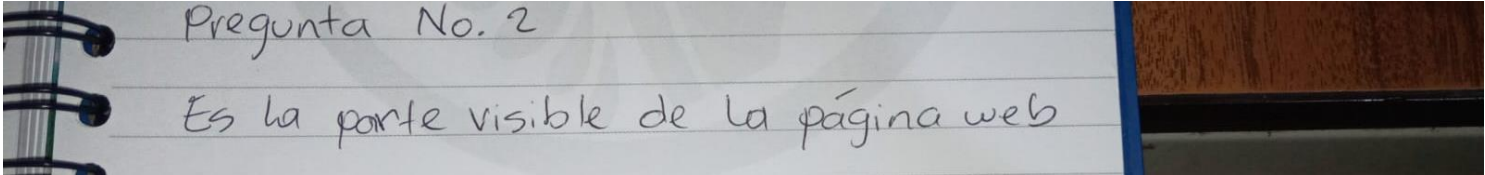 Pregunta No. 2
Es la parte visible de la página web